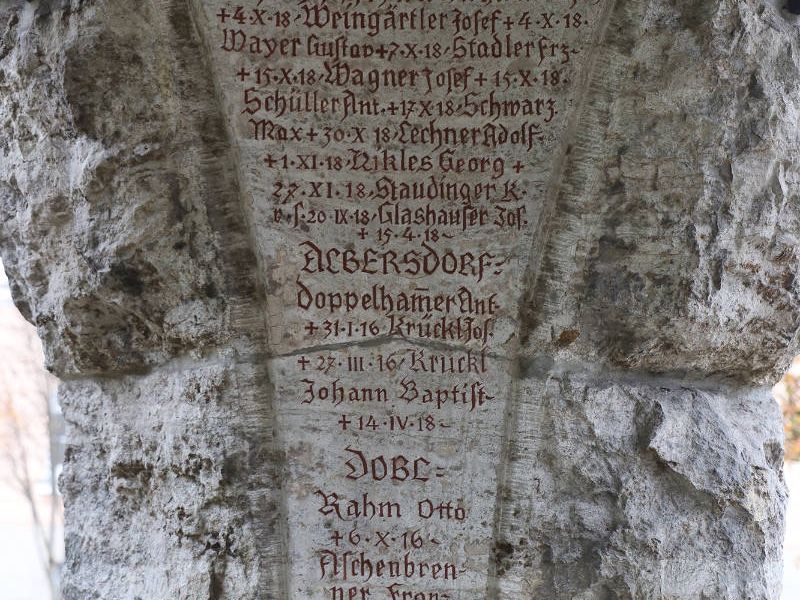 +4·X·18·Weingärtler Josef+4·X·18·
Wayer Gustav+7·X·18·Stadler Frz·
+15·X·18·Wagner Josef+15·X·18·
Schüller Ant.+17·X·18·Schwarz
Max+30·X·18·Lechner Adolf·
+1·XI·18·Nikles Georg+
27·XI·18·Staudinger K·
v·s·20·IX·18·Glashauser Jos.
+15·4·18~
ALBERSDORF=
Doppelham̄er Ant·
+31·I·16 Krückl Jos.
+27·III·16·Krückl
Johann Baptist~
+14·IV·18~
DOBL=
Rahm Otto
+6·X·16~
Aschenbren=
ner Franz